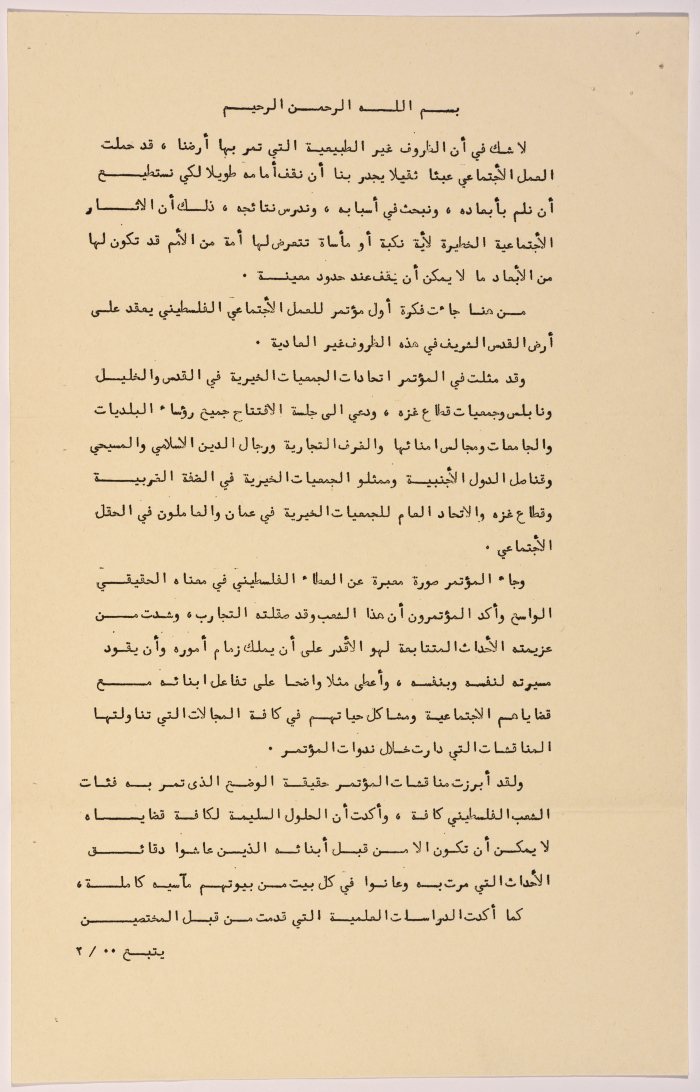 بسم الله الرحمن الرحيم
لا شك في أن الظروف غير الطبيعية التي تمر بها أرضنا ، قد حملت
العمل الأجتماعي عبئا ثقيلا يجدر بنا أن نقف أمامه طويلا لكي نستطيع
أن نلم بأبعاده ، ونبحث في أسبابه ، وندرس نتائجه ، ذلك أن الاثار
الأجتماعية الخطيرة لأية نكبة أو مأساة تتعرض لها أمة من الأمم قد تكون لها
من الأبعاد ما لا يمكن أن يقف عند حدود معينة .
من هنا جاءت فكرة أول مؤتمر للعمل الأجتماعي الفلسطيني يعقد على
أرض القدس الشريف في هذه الظروف غير العادية .
وقد مثلت في المؤتمر اتحادات الجمعيات الخيرية في القدس والخليل
ونابلس وجمعيات قطاع غزه ، ودعي الى جلسة الافتتاح جميع رؤساء البلديات
والجامعات ومجالس امنائها والغرف التجارية ورجال الدين الاسلامي والمسيحي
وقناصل الدول الأجنبية وممثلو الجمعيات الخيرية في الضفة الغربية
وقطاع غزه والاتحاد العام للجمعيات الخيرية في عمان والعاملون في الحقل
الأجتماعي .
وجاء المؤتمر صورة معبرة عن العطاء الفلسطيني في معناه الحقيقي
الواسع وأكد المؤتمرون أن هذا الشعب وقد صقلته التجارب ، وشدت من
عزيمته الأحداث المتتابعة لهو الأقدر على أن يملك زمام أموره وأن يقود
مسيرته لنفسه وبنفسه ، وأعطى مثلا واضحا على تفاعل ابنائه مع
قضاياهم الاجتماعية ومشاكل حياتهم في كافة المجالات التي تناولتها
المناقشات التي دارت خلال ندوات المؤتمر .
ولقد أبرزت مناقشات المؤتمر حقيقة الوضع الذى تمر به فئات
الشعب الفلسطيني كافة ، وأكدت أن الحلول السليمة لكافة قضاياه
لا يمكن أن تكون الا من قبل أبنائه الذين عاشوا دقائق
الأحداث التي مرت به وعانوا في كل بيت من بيوتهم مآسيه كاملة ،
كما أكدت الدراسات العلمية التي قدمت من قبل المختصين
يتبع ٠٠ / ٢